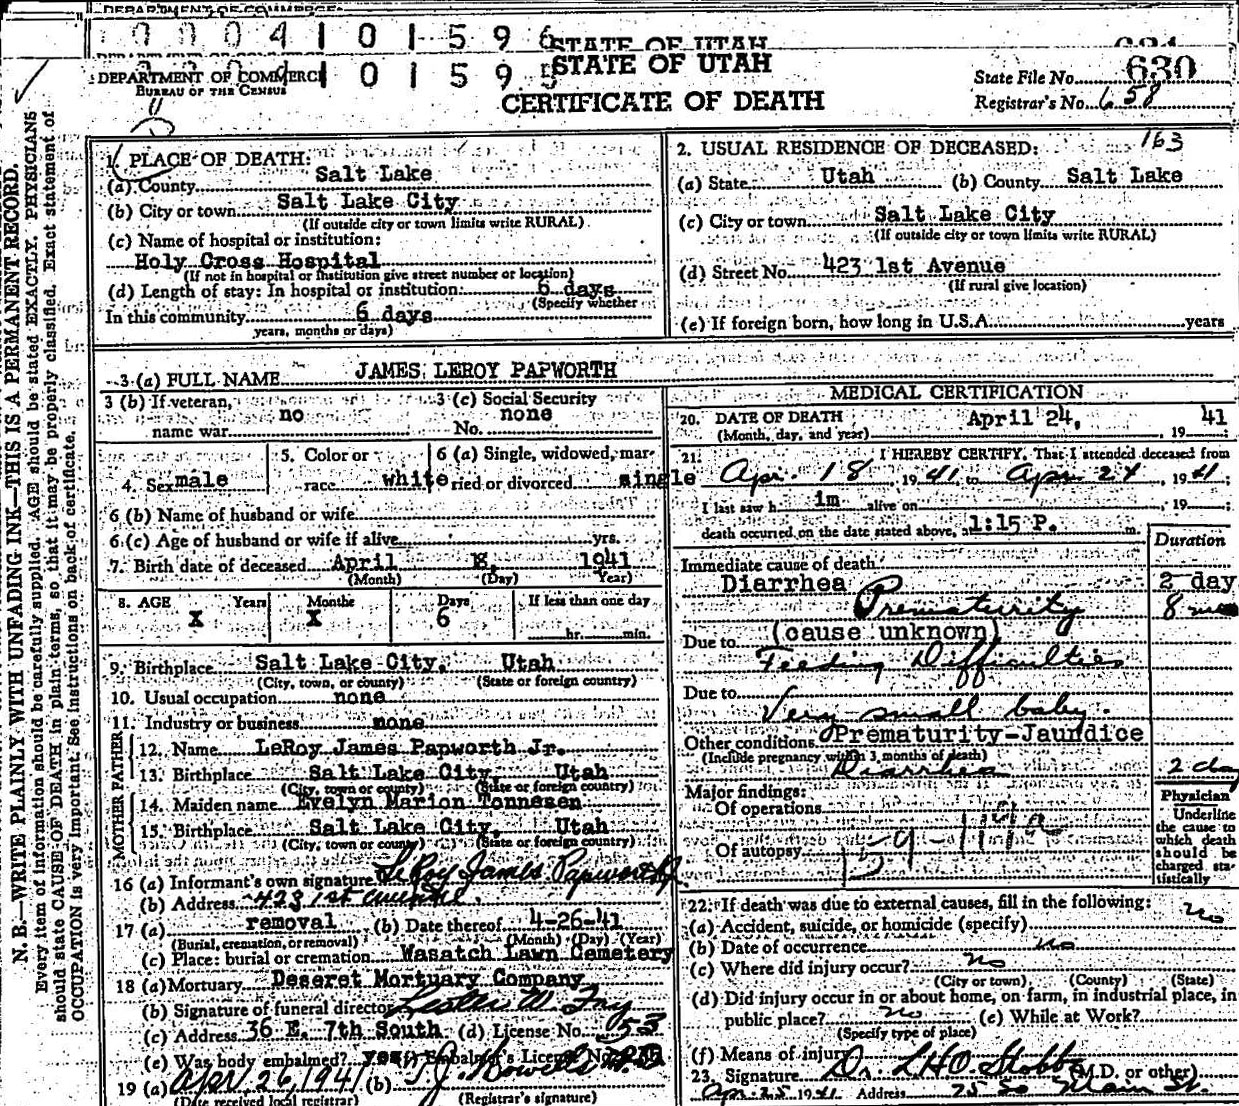 DEPARTMENT OF COMMERCE
0004101596
STATE OF UTAH
631
DEPARTMENT OF COMMERCE
BUREAU OF THE CENSUS
101595
STATE OF UTAH
CERTIFICATE OF DEATH
State File No. 630
Registrar's No. 658
N. B.—WRITE PLAINLY WITH UNFADING INK—THIS IS A PERMANENT RECORD.
Every item of information should be carefully supplied. AGE should be stated EXACTLY. PHYSICIANS
should state CAUSE OF DEATH in plain terms, so that it may be properly classified. Exact statement of
OCCUPATION is very important. See instructions on back of certificate.
1. PLACE OF DEATH:
(a) County Salt Lake
(b) City or town Salt Lake City
(If outside city or town limits write RURAL)
(c) Name of hospital or institution:
Holy Cross Hospital
(If not in hospital or institution give street number or location)
(d) Length of stay: In hospital or institution: 6 days
(Specify whether
In this community 6 days
years, months or days)
2. USUAL RESIDENCE OF DECEASED: 163
(a) State Utah (b) County Salt Lake
(c) City or town Salt Lake City
(If outside city or town limits write RURAL)
(d) Street No. 423 1st Avenue
(If rural give location)
(e) If foreign born, how long in U.S.A. years
3 (a) FULL NAME JAMES LEROY PAPWORTH
3 (b) If veteran, name war no
3 (c) Social Security No. none
4. Sex male
5. Color or race white
6 (a) Single, widowed, married or divorced single
6 (b) Name of husband or wife
6 (c) Age of husband or wife if alive yrs.
7. Birth date of deceased April 18, 1941
(Month) (Day) Year)
8. AGE Years Months Days If less than one day
X X 6 hr. min.
9. Birthplace Salt Lake City, Utah
(City, town, or county) (State or foreign country)
10. Usual occupation none
11. Industry or business none
FATHER
12. Name LeRoy James Papworth Jr.
13. Birthplace Salt Lake City, Utah
(City, town or county) (State or foreign country)
MOTHER
14. Maiden name Evelyn Marion Tonnesen
15. Birthplace Salt Lake City, Utah
(City, town or county) (State or foreign country)
16 (a) Informant's own signature LeRoy James Papworth Jr
(b) Address 423 1st avenue.
17 (a) removal (b) Date thereof 4-26-41
(Burial, cremation, or removal) (Month) (Day) (Year)
(c) Place: burial or cremation Wasatch Lawn Cemetery
18 (a) Mortuary Deseret Mortuary Company
(b) Signature of funeral director
(c) Address 36 E. 7th South (d) License No. 53
(e) Was body embalmed? yes (f) Embalmer's License No.
19 (a) Apr 26, 1941 (b)
(Date received local registrar) (Registrar's signature)
MEDICAL CERTIFICATION
20. DATE OF DEATH April 24, 1941
(Month, day, and year)
21. I HEREBY CERTIFY, That I attended deceased from
Apr. 18, 1941, to Apr 24, 1941;
I last saw h im alive on , 19 ;
death occurred on the date stated above, at 1:15 P. m.
Duration
Immediate cause of death
Diarrhea 2 day
Prematurity 8 mo
Due to (cause unknown)
Feeding Difficulties
Due to
Very small baby.
Other conditions Prematurity-Jaundice
(Include pregnancy within 3 months of death)
Diarrhea 2 day
Major findings:
Of operations
Of autopsy
Physician
Underline
the cause to
which death
should be
charged sta-
tistically
22. If death was due to external causes, fill in the following:
(a) Accident, suicide, or homicide (specify) no
(b) Date of occurrence no
(c) Where did injury occur? no
(City or town) (County) (State)
(d) Did injury occur in or about home, on farm, in industrial place, in
public place? no (e) While at Work?
(Specify type of place)
(f) Means of injury
23. Signature Dr. LHO. Stobbe (M.D. or other)
Apr-25 1941. Address 75 So Main St.